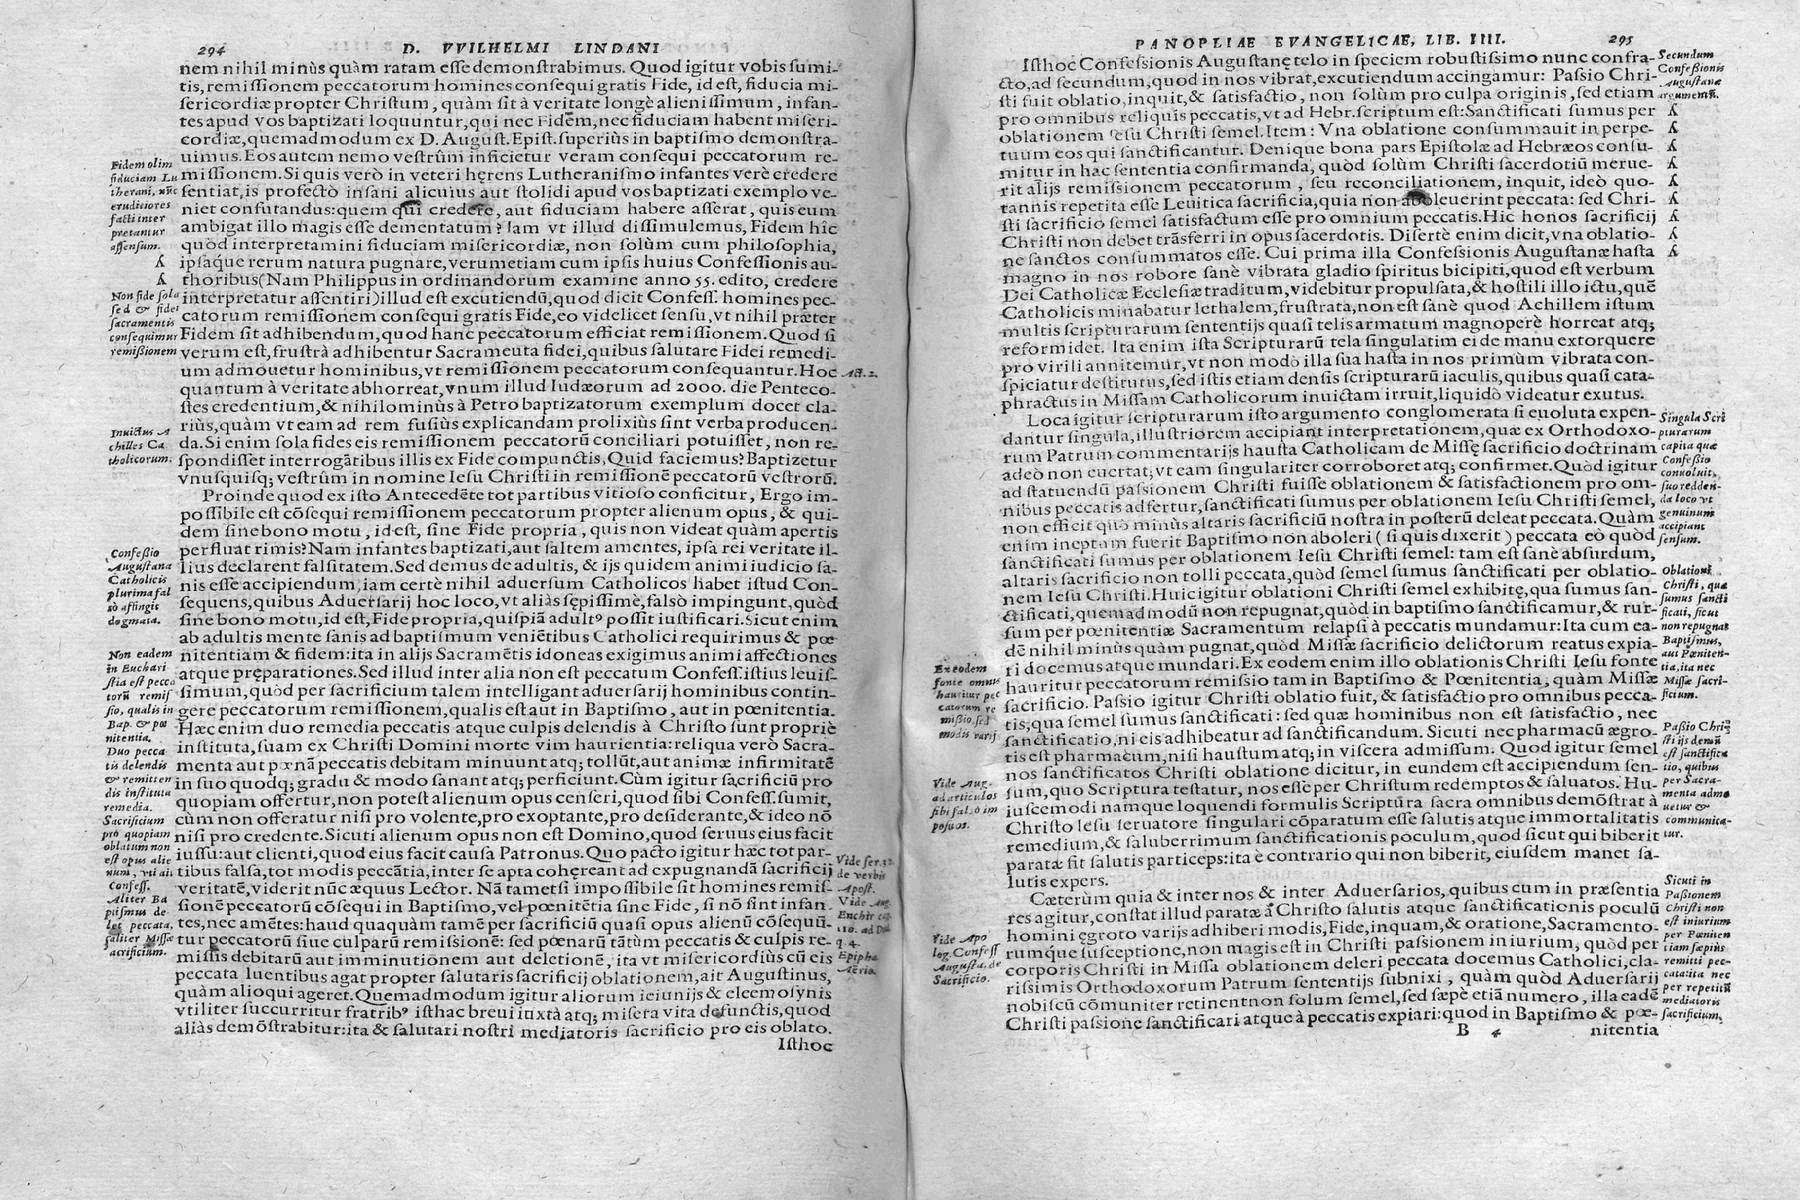 294
D. VVILHELMI LINDANI
nem nihil minùs quàm ratam esse demonstrabimus. Quod igitur vobis sumi-
tis, remissionem peccatorum homines consequi gratis Fide, id est, fiducia mi-
sericordiæ propter Christum, quàm sit à veritate longè alienissimum, infan-
tes apud vos baptizati loquuntur, qui nec Fidem, nec fiduciam habent miseri-
cordiæ, quemadmodum ex D. August. Epist. superiùs in baptismo demonstra-
uimus. Eos autem nemo vestrûm inficietur veram consequi peccatorum re-
missionem. Si quis verò in veteri hęrens Lutheranismo infantes verè credere
sentiat, is profectò insani alicuius aut stolidi apud vos baptizati exemplo ve-
niet confutandus: quem qui credere, aut fiduciam habere asserat, quis eum
ambigat illo magis esse dementatum? Iam vt illud dissimulemus, Fidem hîc
quòd interpretamini fiduciam misericordiæ, non solùm cum philosophia,
ipsaque rerum natura pugnare, verumetiam cum ipsis huius Confessionis au-
thoribus (Nam Philippus in ordinandorum examine anno 55. edito, credere
interpretatur assentiri) illud est excutiendũ, quod dicit Confess. homines pec-
catorum remissionem consequi gratis Fide, eo videlicet sensu, vt nihil præter
Fidem sit adhibendum, quod hanc peccatorum efficiat remissionem. Quod si
verum est, frustrà adhibentur Sacramenta fidei, quibus salutare Fidei remedi-
um admouetur hominibus, vt remissionem peccatorum consequantur. Hoc
quantum à veritate abhorreat, vnum illud Iudæorum ad 2000. die Penteco-
stes credentium, & nihilominùs à Petro baptizatorum exemplum docet cla-
riùs, quàm vt eam ad rem fusiùs explicandam prolixiùs sint verba producen-
da. Si enim sola fides eis remissionem peccatorũ conciliari potuisset, non re-
spondisset interrogãtibus illis ex Fide compunctis, Quid faciemus? Baptizetur
vnusquisq; vestrûm in nomine Iesu Christi in remissionē peccatorũ vestrorũ.
Proinde quod ex isto Antecedēte tot partibus vitioso conficitur, Ergo im-
possibile est cõsequi remissionem peccatorum propter alienum opus, & qui-
dem sine bono motu, id est, sine Fide propria, quis non videat quàm apertis
perfluat rimis? Nam infantes baptizati, aut saltem amentes, ipsa rei veritate il-
lius declarent falsitatem. Sed demus de adultis, & ijs quidem animi iudicio sa-
nis esse accipiendum, iam certè nihil aduersum Catholicos habet istud Con-
sequens, quibus Aduersarij hoc loco, vt aliàs sępissimè, falsò impingunt, quòd
sine bono motu, id est, Fide propria, quispiã adultꝰ possit iustificari. Sicut enim
ab adultis mente sanis ad baptismum veniētibus Catholici requirimus & pœ-
nitentiam & fidem: ita in alijs Sacramētis idoneas exigimus animi affectiones
atque pręparationes. Sed illud inter alia non est peccatum Confess. istius leuis-
simum, quòd per sacrificium talem intelligant aduersarij hominibus contin-
gere peccatorum remissionem, qualis est aut in Baptismo, aut in pœnitentia.
Hæc enim duo remedia peccatis atque culpis delendis à Christo sunt propriè
instituta, suam ex Christi Domini morte vim haurientia: reliqua verò Sacra-
menta aut pœnã peccatis debitam minuunt atq; tollũt, aut animæ infirmitatē
in suo quodq; gradu & modo sanant atq; perficiunt. Cùm igitur sacrificiũ pro
quopiam offertur, non potest alienum opus censeri, quod sibi Confess. sumit,
cùm non offeratur nisi pro volente, pro exoptante, pro desiderante, & ideo nõ
nisi pro credente. Sicuti alienum opus non est Domino, quod seruus eius facit
iussu: aut clienti, quod eius facit causa Patronus. Quo pacto igitur hæc tot par-
tibus falsa, tot modis peccãtia, inter se apta cohęreant ad expugnandã sacrificij
veritatē, viderit nũc æquus Lector. Nã tametsi impossibile sit homines remis-
sionē peccatorũ cõsequi in Baptismo, vel pœnitētia sine Fide, si nõ sint infan-
tes, nec amētes: haud quaquàm tamē per sacrificiũ quasi opus alienũ cõsequũ-
tur peccatorũ siue culparũ remissionē: sed pœnarũ tãtùm peccatis & culpis re-
missis debitarũ aut imminutionem aut deletionē, ita vt misericordiùs cũ eis
peccata luentibus agat propter salutaris sacrificij oblationem, ait Augustinus,
quàm alioqui ageret. Quemadmodum igitur aliorum ieiunijs & eleemosynis
vtiliter succurritur fratribꝰ isthac breui iuxtà atq; misera vita defunctis, quod
aliàs demõstrabitur: ita & salutari nostri mediatoris sacrificio pro eis oblato.
Isthoc
Fidem olim
fiduciam Lu
therani, nũc
eruditiores
facti inter
pretantur
assensum.
Non fide sola
sed & fidei
sacramentis
consequimur
remißionem
Act. 2.
Inuictus A
chilles Ca
tholicorum.
Confeßio
Augustana
Catholicis
plurima fal
sò affingit
dogmata.
Non eadem
in Euchari
stia est pecca
torũ remis
sio, qualis in
Bap. & pœ
nitentia.
Duo pecca
tis delendis
& remitten
dis instituta
remedia.
Sacrificium
pro quopiam
oblatum non
est opus alie
num, vti ait
Confess.
Aliter Ba
ptismus de
let peccata,
aliter Missæ
sacrificium.
Vide ser. 32.
de verbis
Apost.
Vide Aug.
Enchir. cap.
110. ad Dul.
q. 4.
Epipha.
Aërio.
PANOPLIAE EVANGELICAE, LIB. IIII.
295
Isthoc Confessionis Augustanę telo in speciem robustissimo nunc confra-
cto, ad secundum, quod in nos vibrat, excutiendum accingamur: Passio Chri-
sti fuit oblatio, inquit, & satisfactio, non solùm pro culpa originis, sed etiam
pro omnibus reliquis peccatis, vt ad Hebr. scriptum est: Sanctificati sumus per
oblationem Iesu Christi semel. Item: Vna oblatione consummauit in perpe-
tuum eos qui sanctificantur. Denique bona pars Epistolæ ad Hebræos consu-
mitur in hac sententia confirmanda, quòd solùm Christi sacerdotiũ merue-
rit alijs remissionem peccatorum, seu reconciliationem, inquit, ideò quo-
tannis repetita esse Leuitica sacrificia, quia non aboleuerint peccata: sed Chri-
sti sacrificio semel satisfactum esse pro omnium peccatis. Hic honos sacrificij
Christi non debet trãsferri in opus sacerdotis. Disertè enim dicit, vna oblatio-
ne sanctos consummatos esse. Cui prima illa Confessionis Augustanæ hasta
magno in nos robore sanè vibrata gladio spiritus bicipiti, quod est verbum
Dei Catholicæ Ecclesiæ traditum, videbitur propulsata, & hostili illo ictu, quē
Catholicis minabatur lethalem, frustrata, non est sanè quod Achillem istum
multis scripturarum sententijs quasi telis armatum magnoperè horreat atq;
reformidet. Ita enim ista Scripturarũ tela singulatim ei de manu extorquere
pro virili annitemur, vt non modò illa sua hasta in nos primùm vibrata con-
spiciatur destitutus, sed istis etiam densis scripturarũ iaculis, quibus quasi cata-
phractus in Missam Catholicorum inuictam irruit, liquidò videatur exutus.
Loca igitur scripturarum isto argumento conglomerata si euoluta expen-
dantur singula, illustriorem accipiant interpretationem, quæ ex Orthodoxo-
rum Patrum commentarijs hausta Catholicam de Missę sacrificio doctrinam
adeò non euertat, vt eam singulariter corroboret atq; confirmet. Quòd igitur
ad statuendũ passionem Christi fuisse oblationem & satisfactionem pro om-
nibus peccatis adfertur, sanctificati sumus per oblationem Iesu Christi semel,
non efficit quò minùs altaris sacrificiũ nostra in posterũ deleat peccata. Quàm
enim ineptum fuerit Baptismo non aboleri (si quis dixerit) peccata eò quòd
sanctificati sumus per oblationem Iesu Christi semel: tam est sanè absurdum,
altaris sacrificio non tolli peccata, quòd semel sumus sanctificati per oblatio-
nem Iesu Christi. Huic igitur oblationi Christi semel exhibitę, qua sumus san-
ctificati, quemadmodũ non repugnat, quòd in baptismo sanctificamur, & rur-
sum per pœnitentiæ Sacramentum relapsi à peccatis mundamur: Ita cum ea-
dē nihil minùs quàm pugnat, quòd Missæ sacrificio delictorum reatus expia-
ri docemus atque mundari. Ex eodem enim illo oblationis Christi Iesu fonte
hauritur peccatorum remissio tam in Baptismo & Pœnitentia, quàm Missæ
sacrificio. Passio igitur Christi oblatio fuit, & satisfactio pro omnibus pecca-
tis, qua semel sumus sanctificati: sed quæ hominibus non est satisfactio, nec
sanctificatio, ni eis adhibeatur ad sanctificandum. Sicuti nec pharmacũ ægro-
tis est pharmacum, nisi haustum atq; in viscera admissum. Quod igitur semel
nos sanctificatos Christi oblatione dicitur, in eundem est accipiendum sen-
sum, quo Scriptura testatur, nos esse per Christum redemptos & saluatos. Hu-
iuscemodi namque loquendi formulis Scriptura sacra omnibus demõstrat à
Christo Iesu seruatore singulari cõparatum esse salutis atque immortalitatis
remedium, & saluberrimum sanctificationis poculum, quod sicut qui biberit
paratæ sit salutis particeps: ita è contrario qui non biberit, eiusdem manet sa-
lutis expers.
Cæterùm quia & inter nos & inter Aduersarios, quibuscum in præsentia
res agitur, constat illud paratæ à Christo salutis atque sanctificationis poculũ
homini ęgroto varijs adhiberi modis, Fide, inquam, & oratione, Sacramento-
rumque susceptione, non magis est in Christi passionem iniurium, quòd per
corporis Christi in Missa oblationem deleri peccata docemus Catholici, cla-
rissimis Orthodoxorum Patrum sententijs subnixi, quàm quòd Aduersarij
nobiscũ cõmuniter retinent non solum semel, sed sæpè etiã numero, illa eadē
Christi passione sanctificari atque à peccatis expiari: quod in Baptismo & pœ-
B 4
nitentia
Secundum
Confeßionis
Augustanæ
argumentũ.
Singula Scri
pturarum
capita quæ
Confeßio
conuoluit,
suo redden-
da loco vt
genuinum
accipiant
sensum.
Oblationi
Christi, qua
sumus sancti
ficati, sicut
non repugnat
Baptismus,
aut Pœniten-
tia, ita nec
Missæ sacri-
ficium.
Ex eodem
fonte omnis
hauritur pec
catorum re
mißio, sed
modis varijs
Paßio Chri-
sti ijs demũ
est sanctifica
tio, quibus
per Sacra-
menta admo
uetur &
communica-
tur.
Vide Aug.
ad articulos
sibi falsò im
positos.
Sicuti in
Paßionem
Christi non
est iniurium
per Pœniten
tiam sæpius
remitti pec-
cata: ita nec
per repetitũ
mediatoris
sacrificium.
Vide Apo
log. Confess
Augusta. de
Sacrificio.